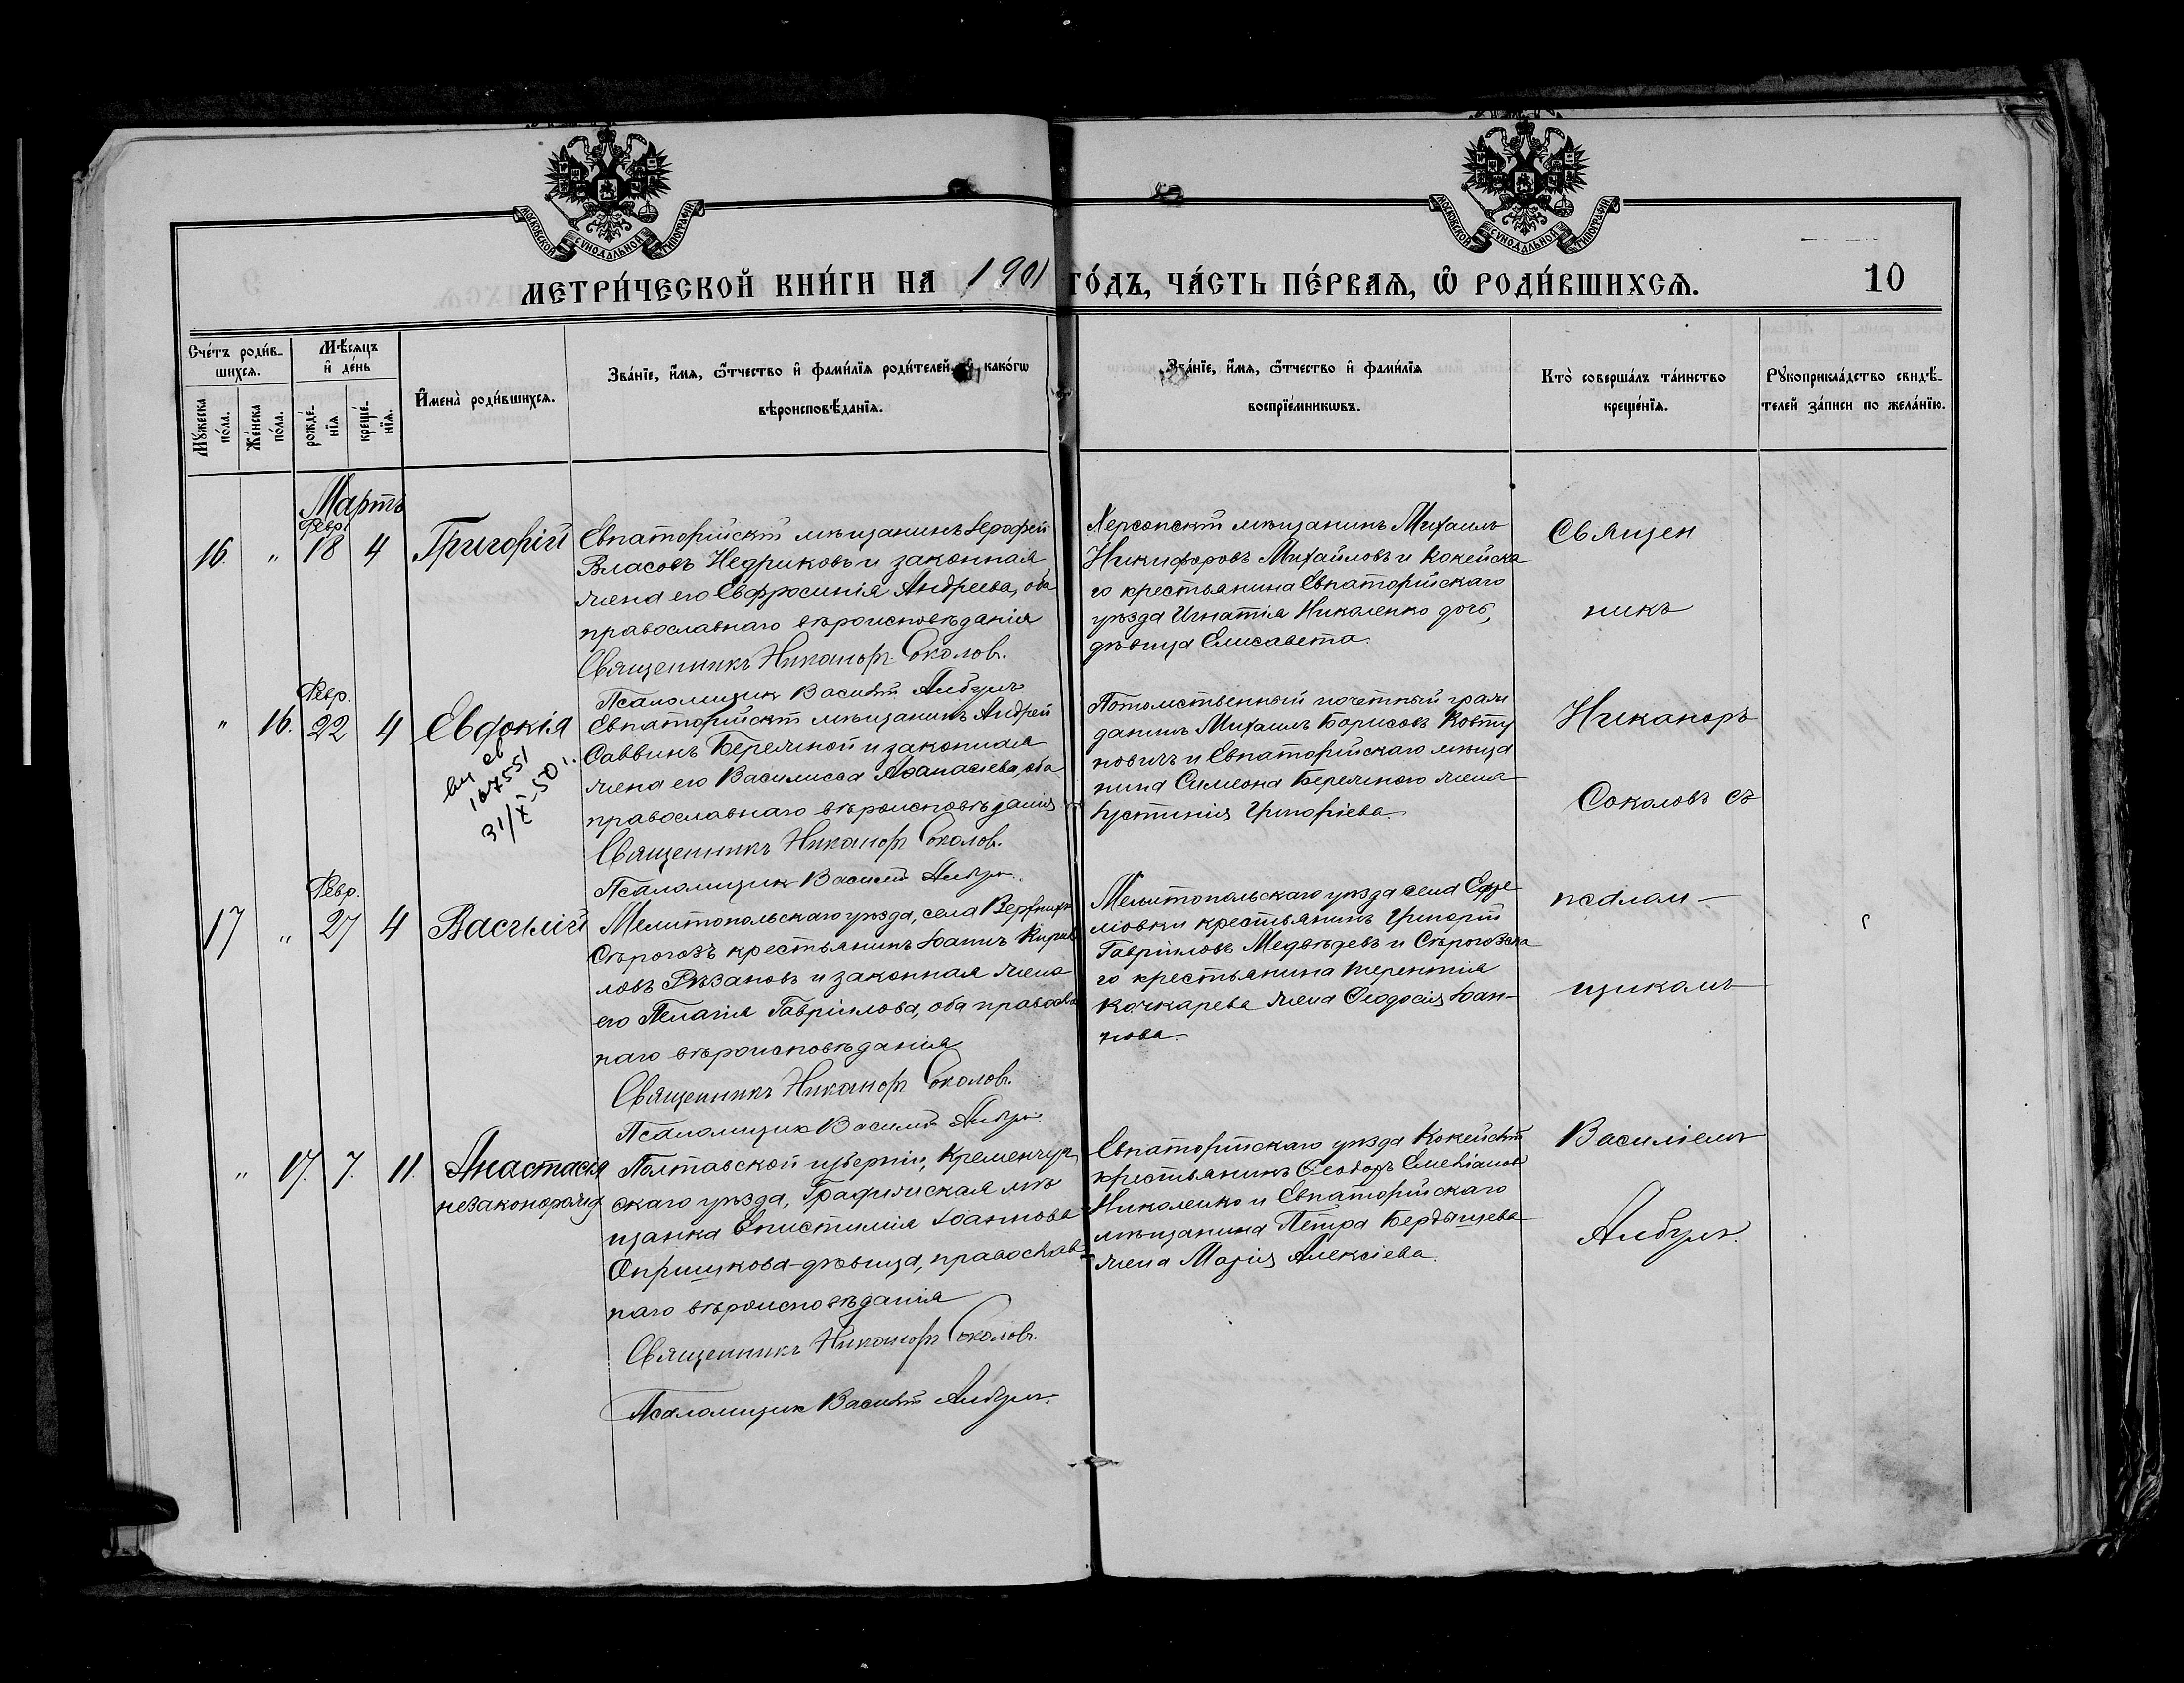 МОСКОВСКОЙ СѴНОДАЛЬНОЙ ТИПОГРАФІИ
МОСКОВСКОЙ СѴНОДАЛЬНОЙ ТИПОГРАФІИ
МЕТРИ́ЧЕСКОЙ КНИ́ГИ НА 1901 ГО́ДЪ, ЧА́СТЬ ПЕ́РВАѦ, Ѽ РОДИ́ВШИХСѦ.
10
Сче́тъ роди́в-
шихсѧ.
Мꙋ́жеска
по́ла.
Же́нска
по́ла.
Мѣ́сѧцъ
и҆ де́нь
рожде́-
нїѧ
креще́-
нїѧ.
И҆мена̀ роди́вшихсѧ.
Зва́нїе, и҆́мѧ, ѻ҆́тчество и҆ фами́лїѧ роди́телей, и҆ како́гѡ
вѣроисповѣ́данїѧ.
Зва́нїе, и҆́мѧ, ѻ҆́тчество и҆ фами́лїѧ
воспрїе́мникѡвъ.
Кто̀ соверша́лъ та́инство
креще́нїѧ.
Рꙋкоприкла́дство свидѣ́-
телей за́писи по жела́нїю.
Мартъ
Февр.
16. " 18 4 Григорій
Евпаторійскій мѣщанинъ Іерофей
Власовъ Недриковъ и законная
жена его Евфросинія Андреева, оба
православнаго вѣроисповѣданія
Священникъ Никаноръ Соколовъ.
Псаломщикъ Василій Албулъ
Херсонскій мѣщанинъ Михаилъ
Никифоровъ Михайловъ и Кокейска
го крестьянина Евпаторійскаго
уѣзда Игнатія Николенко дочь,
дѣвица Елисавета.
Февр.
" 16. 22 4 Евдокія
167551
31/X-50 г.
Евпаторійскій мѣщанинъ Андрей
Саввинъ Бережной и законная
жена его Василисса Аѳанасіева, оба
православнаго вѣроисповѣданія
Священникъ Никаноръ Соколовъ.
Псаломщикъ Василій Албулъ.
Потомственный почетный граж
данинъ Михаилъ Борисовъ Ковту
новичъ и Евпаторійскаго мѣща
нина Симеона Бережного жена
Іустинія Григоріева.
Февр.
17 " 27 4 Василій
Мелитопольскаго уѣзда, села Верхнихъ
Сѣрогозъ крестьянинъ Іоаннъ Кирил
ловъ Рѣзановъ и законная жена
его Пелагія Гавріилова, оба православ
наго вѣроисповѣданія
Священникъ Никаноръ Соколовъ.
Псаломщикъ Василій Албулъ.
Мелитопольскаго уѣзда села Ефре
мовки крестьянинъ Григорій
Гавріиловъ Медвѣдевъ и Сѣрогозска
го крестьянина Терентія
Кочкарева жена Ѳеодосія Іоан-
нова.
" 17. 7. 11. Анастасія
незаконорожд.
Полтавской губерніи, Кременчуг
скаго уѣзда, Градижская мѣ
щанка Епистимія Іоаннова
Опришкова-дѣвица, православ-
наго вѣроисповѣданія
Священникъ Никаноръ Соколовъ.
Псаломщикъ Василій Албулъ.
Евпаторійскаго уѣзда Кокейскій
крестьянинъ Ѳеодоръ Емеліановъ
Николенко и Евпаторійскаго
мѣщанина Петра Бердышева
жена Марія Алексіева.
Священ
никъ
Никаноръ
Соколовъ съ
псалом-
щикомъ
Василіемъ
Албулъ.